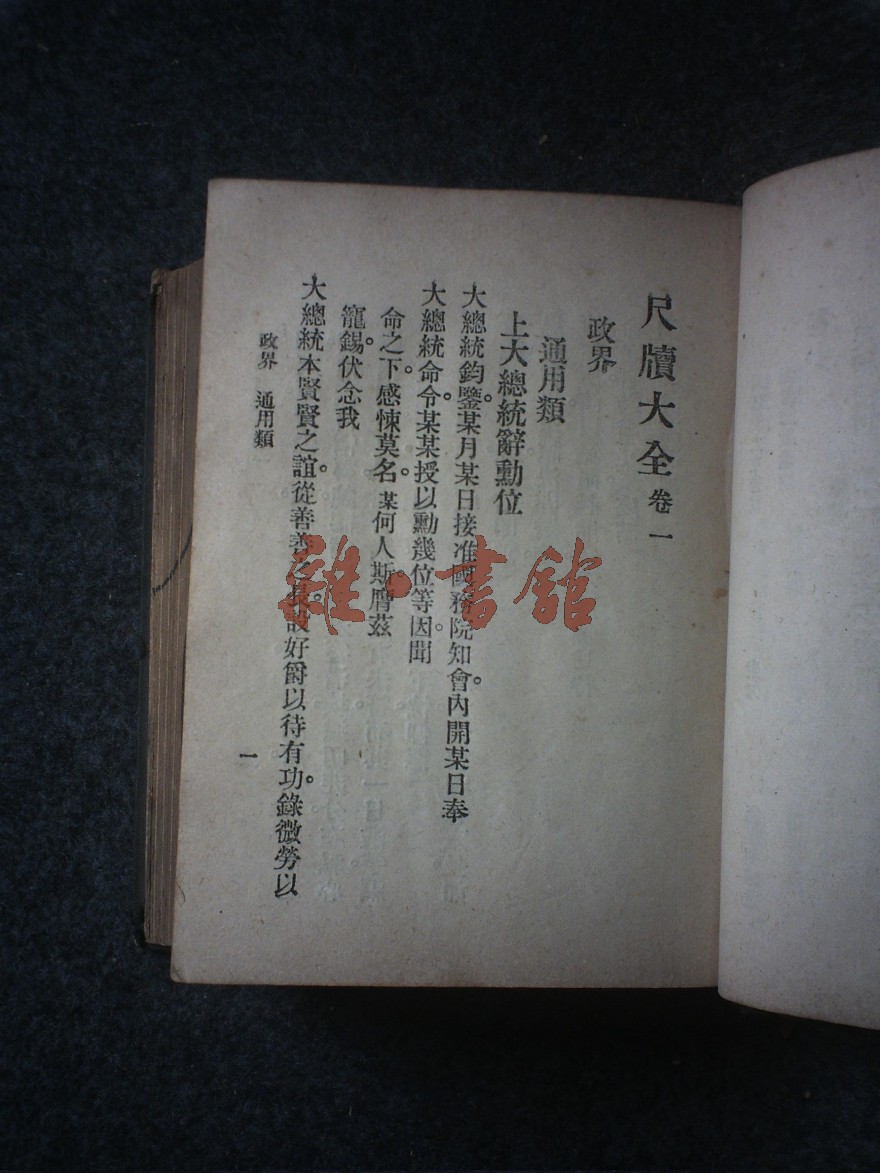 尺牘大全 卷一
政界
通用類
上大總統辭勳位
大總統鈞鑒。某月某日接准國務院知會。內開某日奉
大總統命令。某某授以勳幾位等因。聞
命之下。感悚莫名。某何人斯。膺茲
寵錫。伏念我
大總統本賢賢之誼。從善善之長。設好爵以待有功。錄微勞以
政界 通用類
一
雜·書館